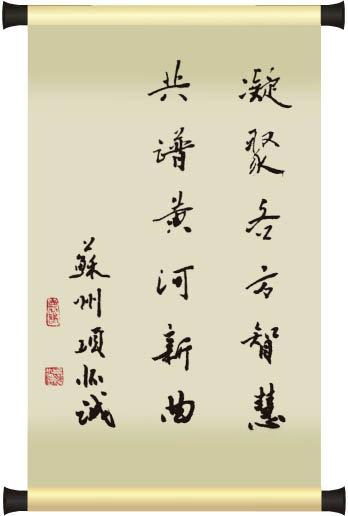 凝聚各方智慧
共谱黄河新曲
蘇州項怀诚